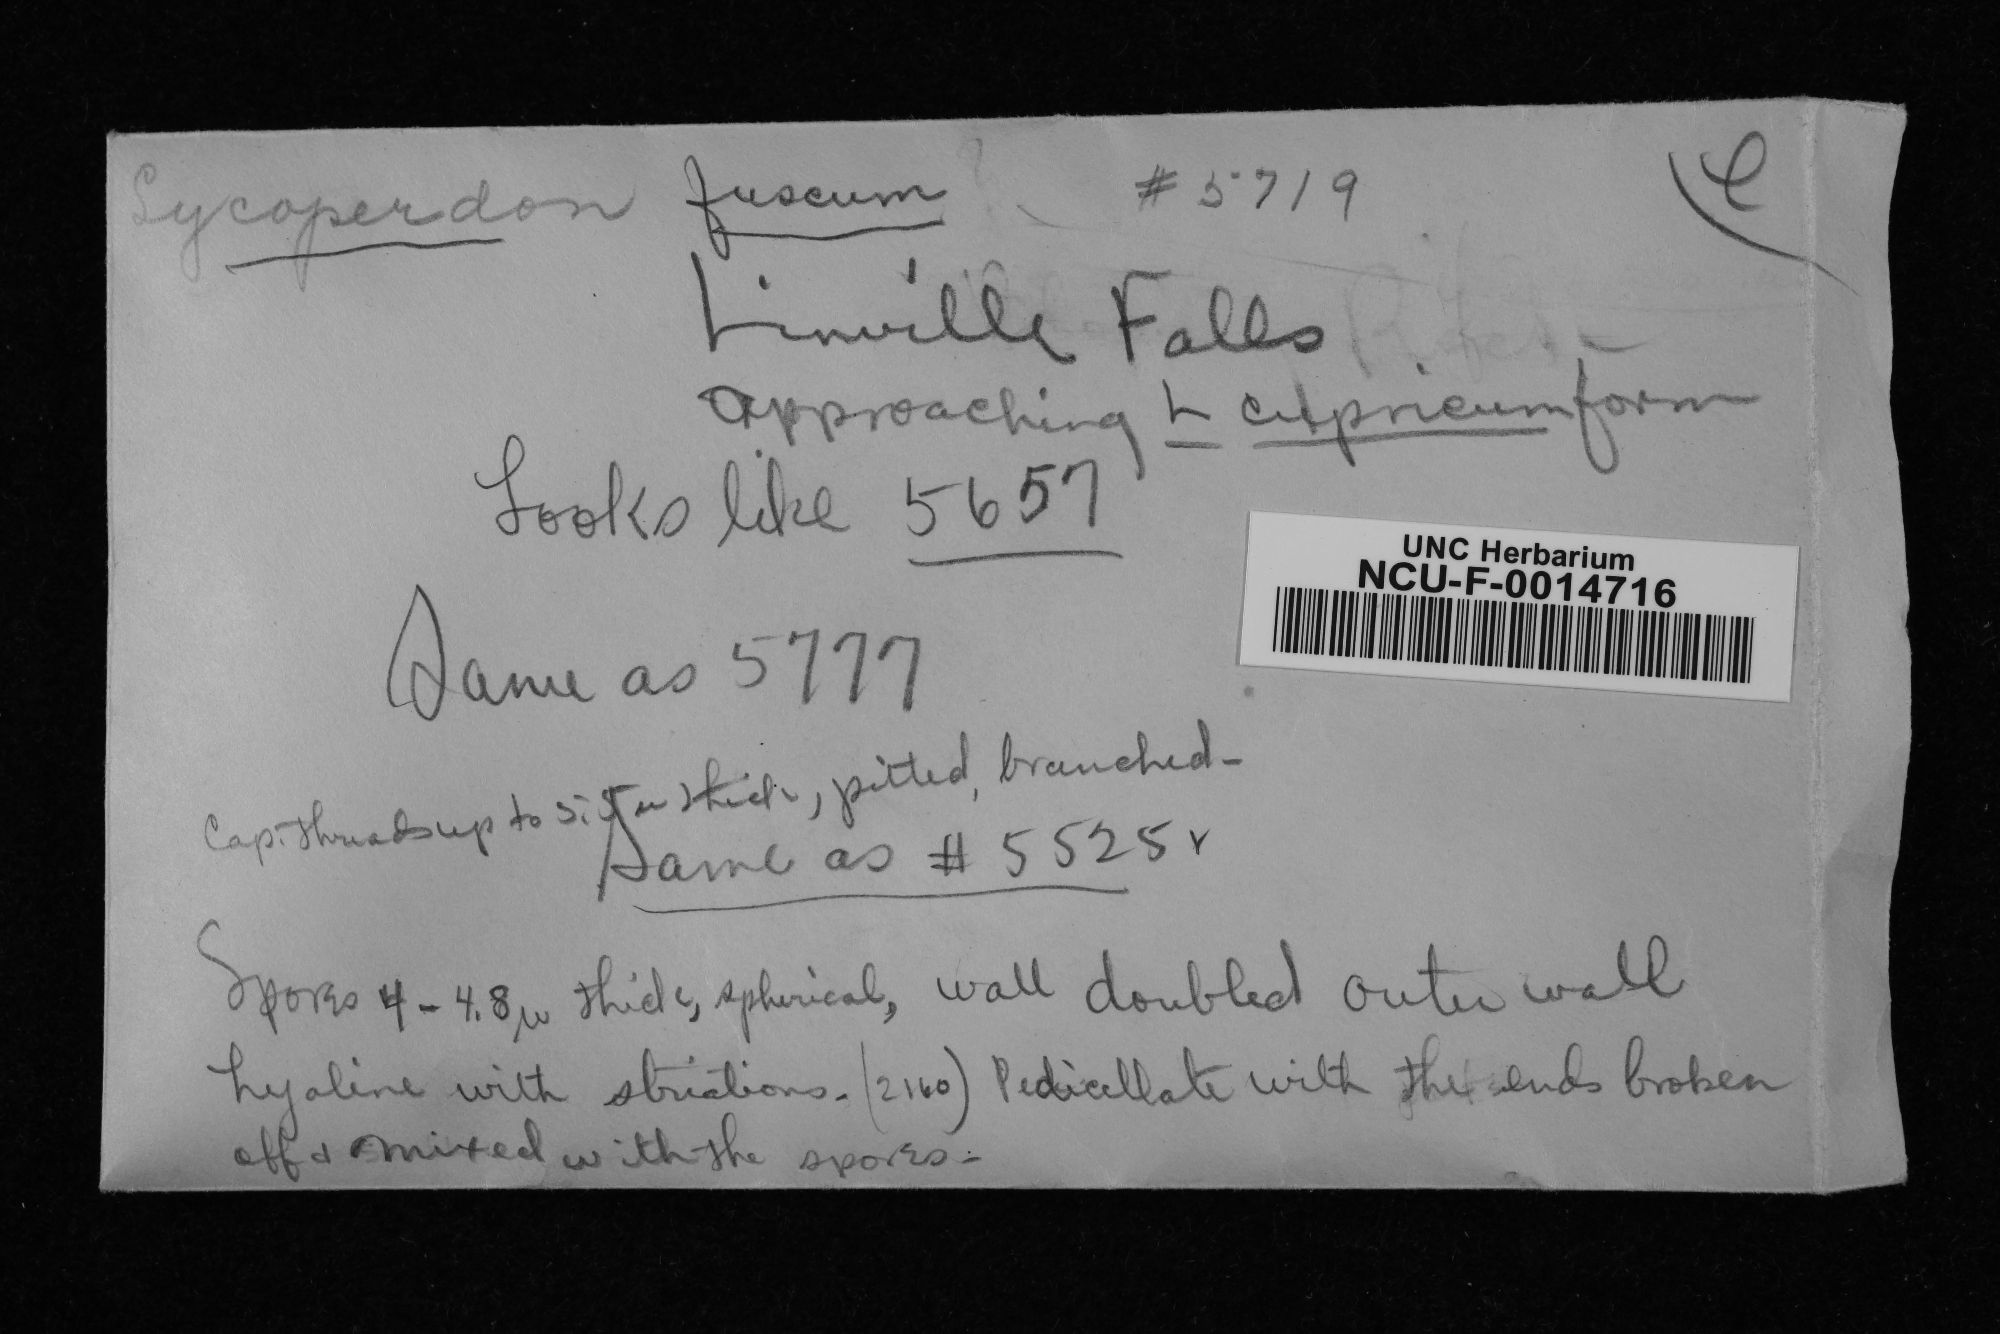 Lycoperdon fuscum #5719 C
Linville Falls
approaching L cupricum form
Looks like 5657
UNC Herbarium
NCU-F-0014716
Same as 5777
Cap. threads up to 5.5µ thick, pitted, branched-
Same as # 5525 v
Spores 4-4.8µ thick, spherical, wall doubled outer wall
hyaline with striations. (2160) Pedicellate with the ends broken
off & mixed with the spores-